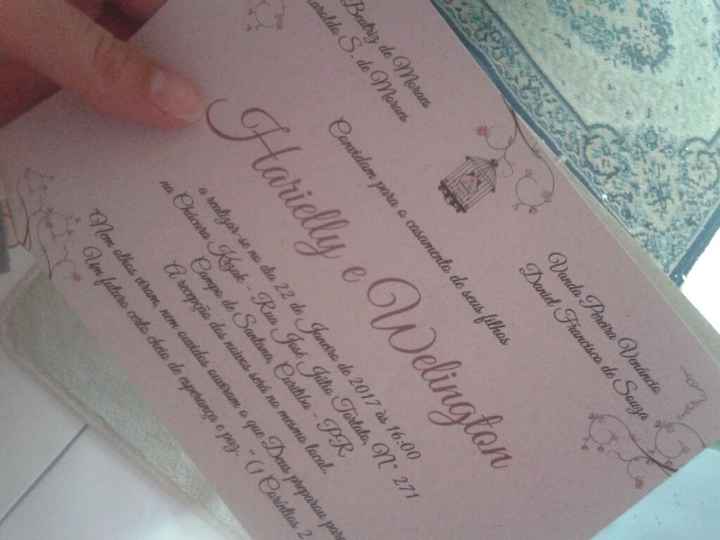 Beatriz de Moraes
S. de Moraes
Vanda Pereira Venâncio
Francisco de Souza
Convidam para o casamento de seus filhos
Harielly e Welington
a realizar-se no dia 22 de Janeiro de 2017 às 16:00
na Chácara - Rua José Júlio N° 271
Campo de Santana, Curitiba - PR.
A recepção dos noivos será no mesmo local.
"Nem olhos viram, nem ouvidos ouviram o que Deus preparou para
Um futuro certo cheio de esperança e paz." (1 Coríntios 2